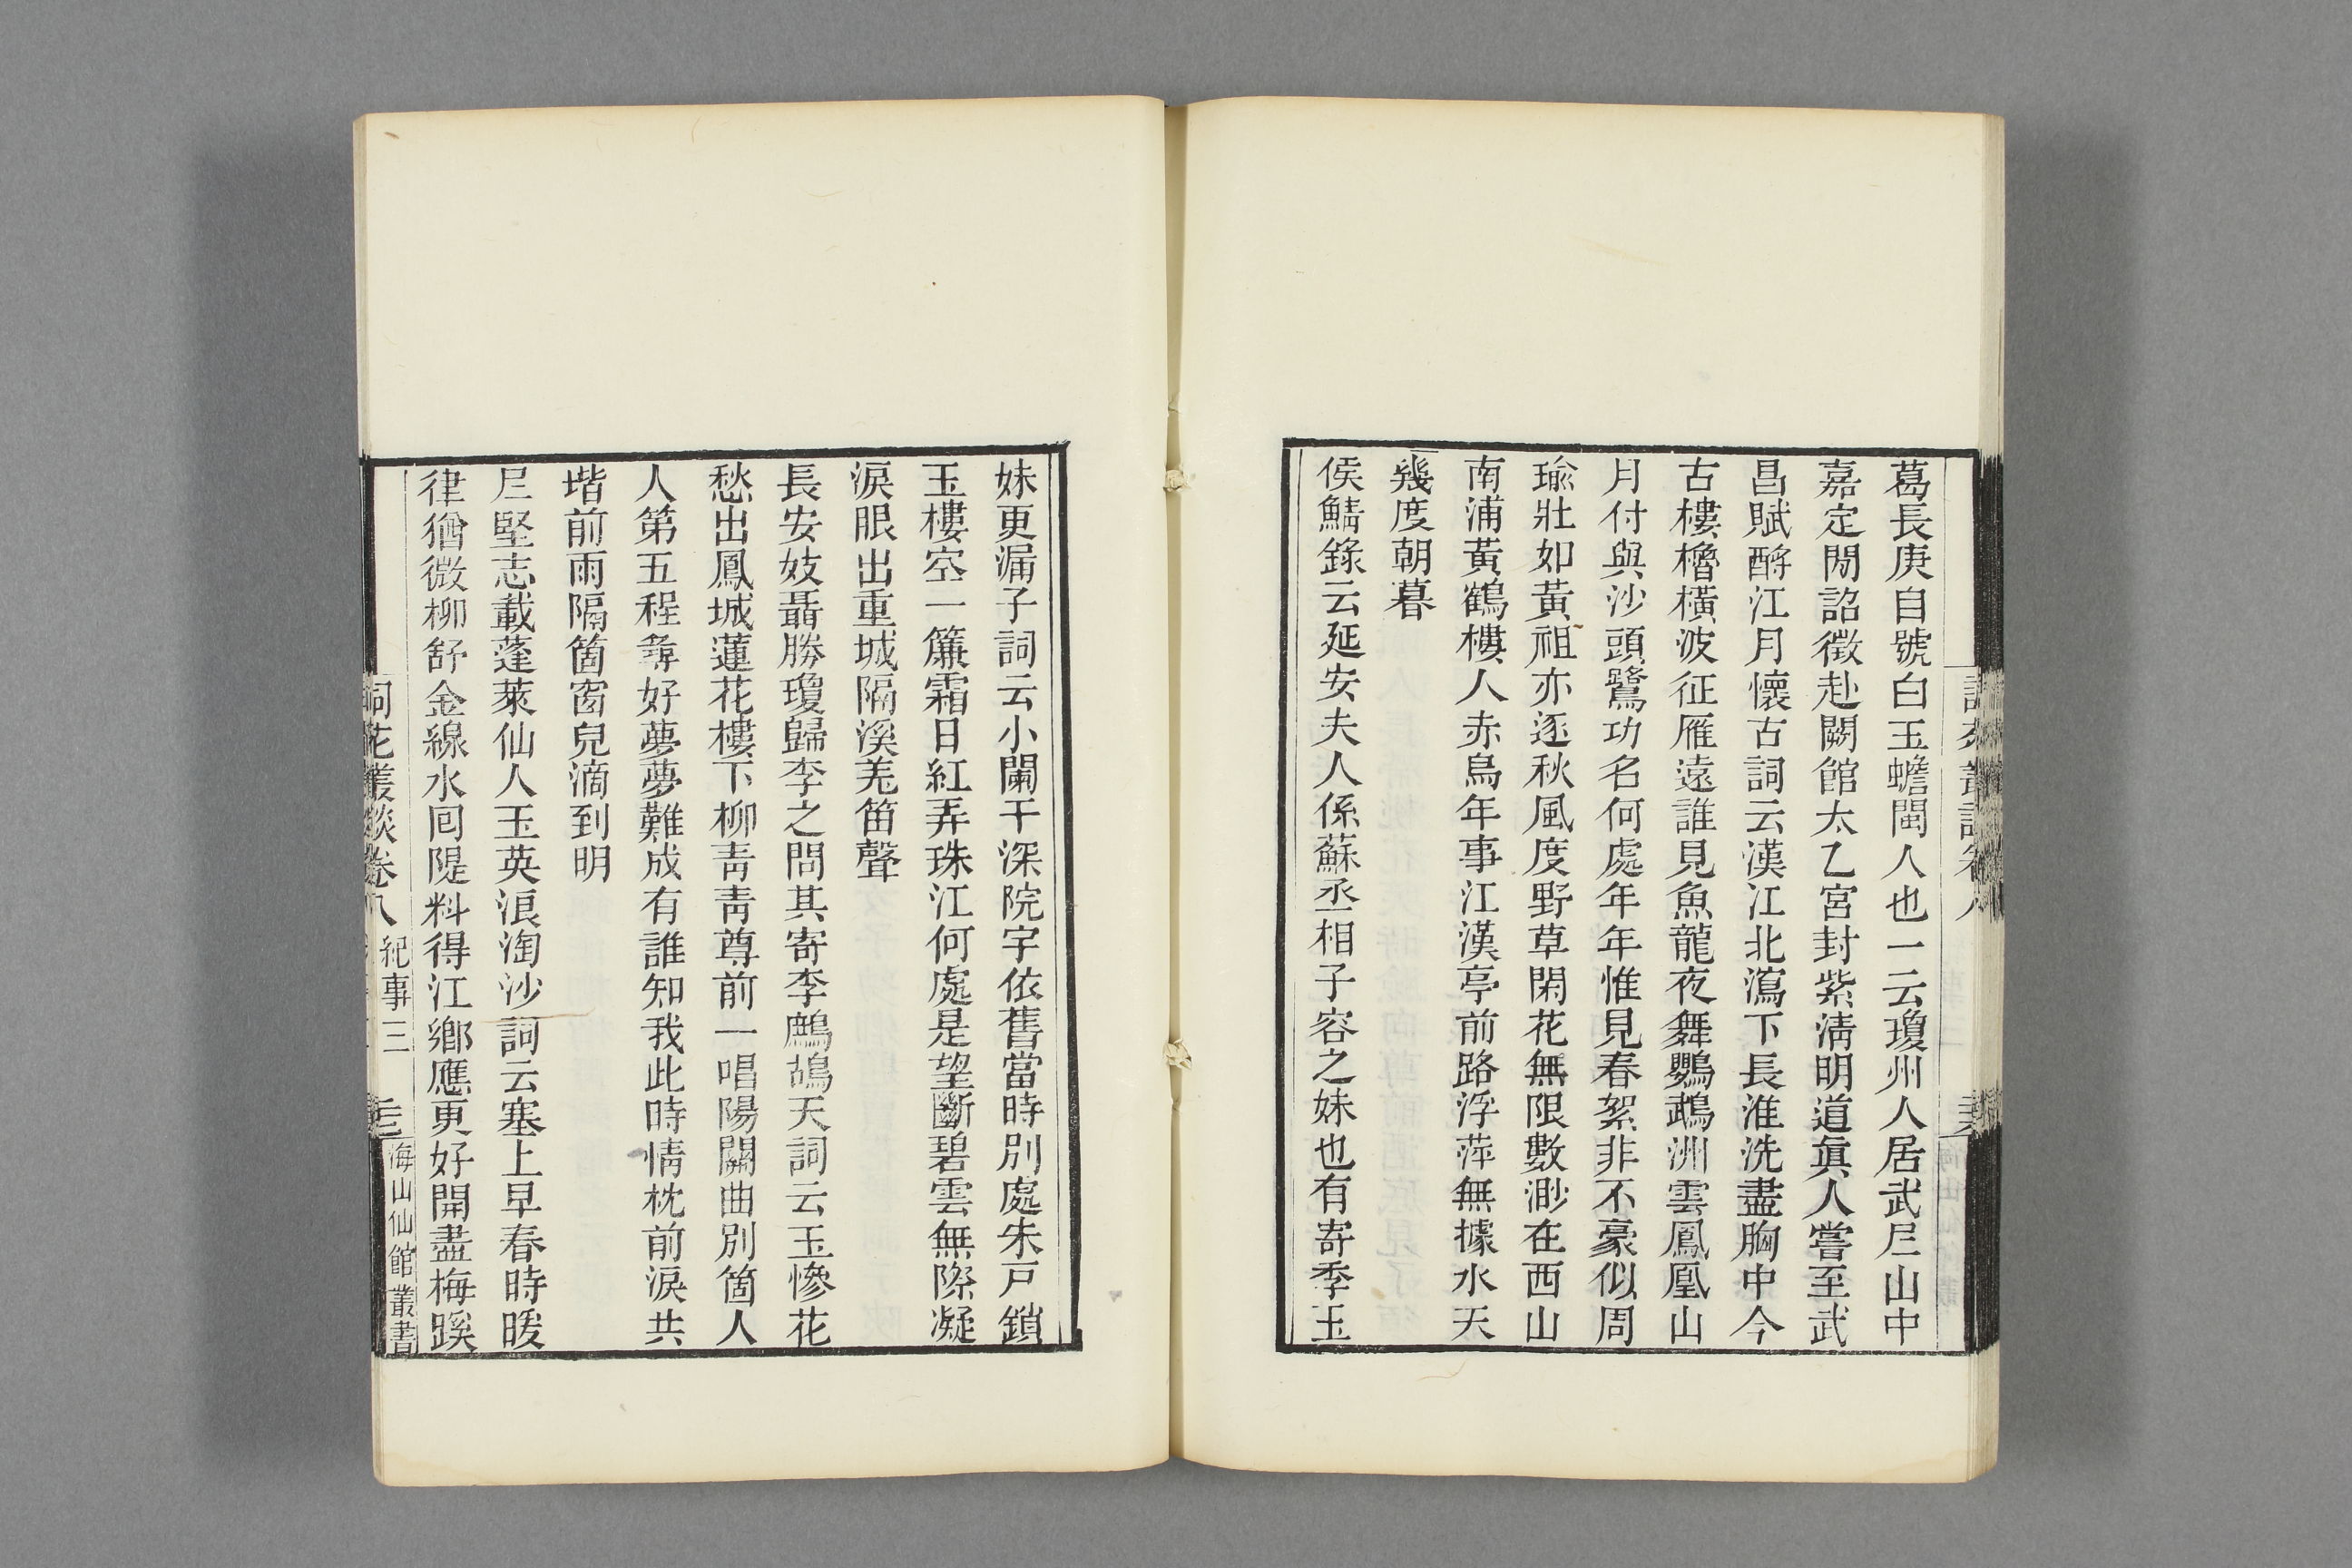 葛長庚自號白玉蟾閩人也一云瓊州人居武𡰥山中
嘉定閒詔徵赴闕館太乙宮封紫淸明道眞人嘗至武
昌賦酹江月懷古詞云漢江北瀉下長淮洗盡胸中今
古樓櫓橫波征雁遠誰見魚龍夜舞鸚鵡洲雲鳳凰山
月付與沙頭鷺功名何處年年惟見春絮非不豪似周
瑜壯如黃祖亦逐秋風度野草閑花無限數渺在西山
南浦黃鶴樓人赤烏年事江漢亭前路浮萍無據水天
幾度朝暮
侯鯖錄云延安夫人係蘇丞相子容之妹也有寄季玉
妹更漏子詞云小闌干深院宇依舊當時別處朱戸鎖
玉樓空一簾霜日紅弄珠江何處是望斷碧雲無際凝
淚眼出重城隔溪羌笛聲
長安妓聶勝瓊歸李之問其寄李鷓鴣天詞云玉慘花
愁出鳳城蓮花樓下柳靑靑尊前一唱陽關曲別箇人
人第五程尋好夢夢難成有誰知我此時情枕前淚共
堦前雨隔箇窗兒滴到明
𡰥堅志載蓬萊仙人玉英浪淘沙詞云塞上早春時暖
律猶微柳舒金線水囘隄料得江鄉應更好開盡梅蹊
詞苑叢談卷八 紀事三 海山仙館叢書